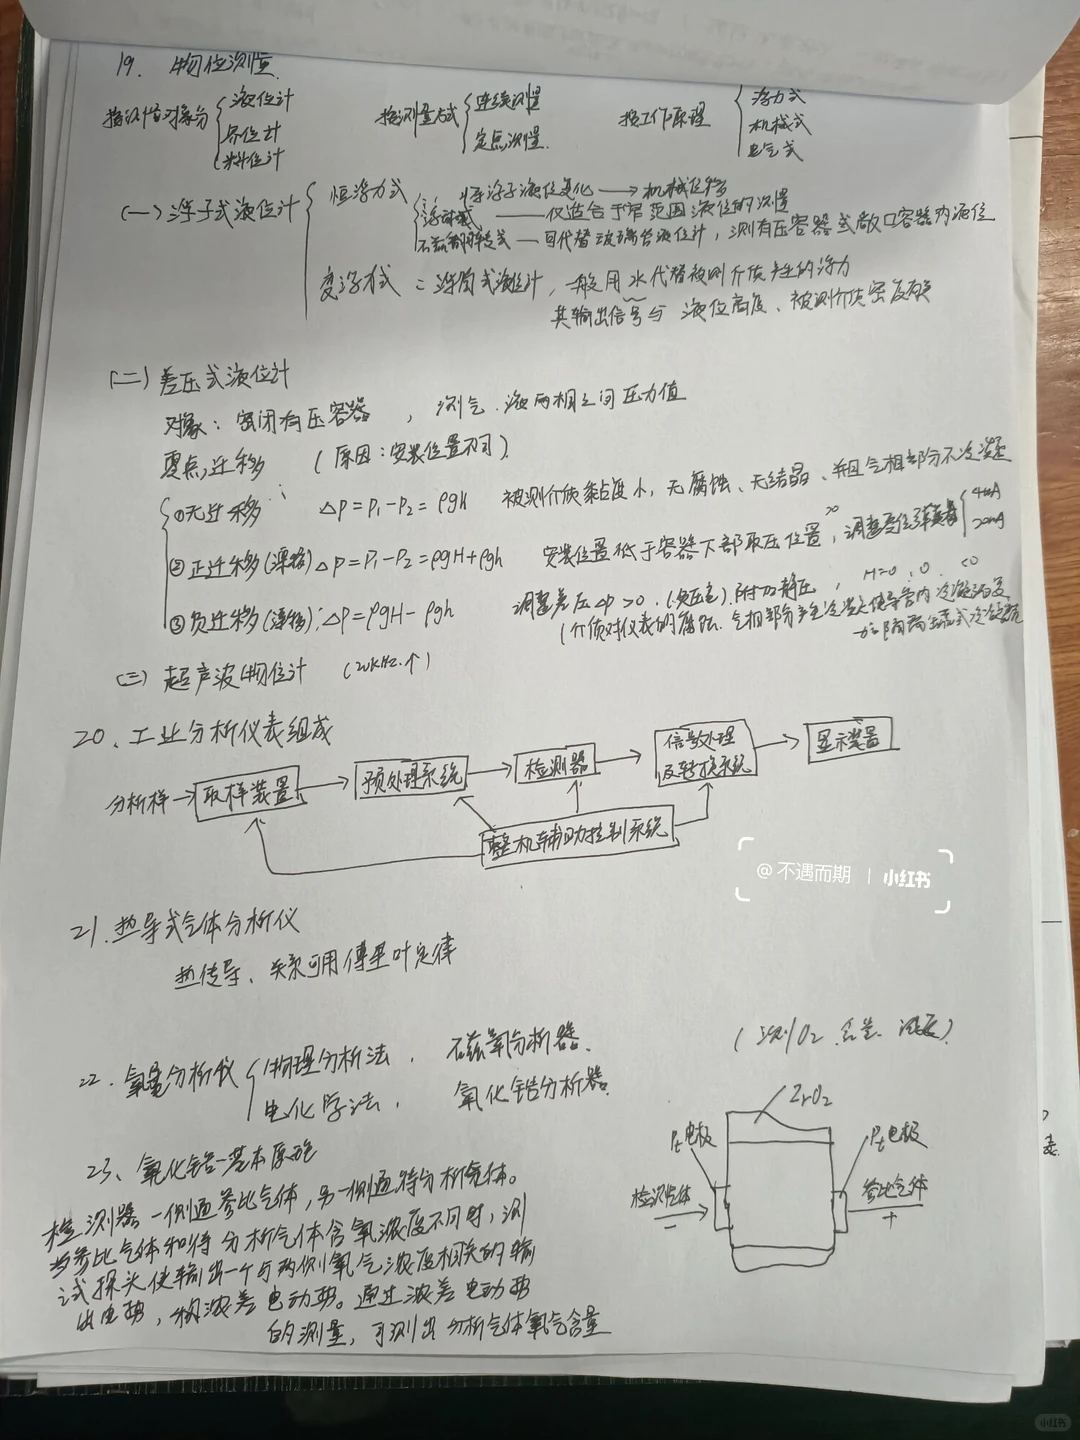 19. 物位测量
按测量对象分 液位计 界位计 料位计
按测量方式 连续测量 定点测量.
按工作原理 浮力式 机械式 电气式
(一) 浮子式液位计
恒浮力式
浮子液位变化 → 机械位移
—— 仅适合于窄范围液位的测量
— 可代替玻璃管液位计, 测有压容器或敞口容器内液位
变浮力式 : 浮筒式液位计, 一般用水代替被测介质产生的浮力
其输出信号与 液位高度、被测介质密度有关
(二) 差压式液位计
对象: 密闭有压容器 , 测气.液两相之间压力值
零点迁移 (原因:安装位置不同)
①无迁移 : ΔP=P₁-P₂=ρgH 被测介质黏度小, 无腐蚀、无结晶、并且气相部分不冷凝
②正迁移(漂移) ΔP=P₁-P₂=ρgH+ρgh 安装位置低于容器下部取压位置, 调整变位弹簧 4mA 20mA
③负迁移(漂移): ΔP=ρgH-ρgh 调整差压ΔP>0. (负压室)附加静压, H=0 , 0 . <0
(介质对仪表的腐蚀. 气相部分产生冷凝使导管内
加隔离
(三) 超声波物位计 (20kHz.↑)
20、工业分析仪表组成
分析样→ 取样装置 → 预处理系统 → 检测器 → 信号处理及转换系统 → 显示装置
整机辅助控制系统
@不遇而期 | 小红书
21.热导式气体分析仪
热传导、关系可用傅里叶定律
22. 氧量分析仪 物理分析法, 磁氧分析器、
电化学法, 氧化锆分析器.
(测O₂ 含量、浓度)
23、氧化锆-基本原理
检测器一侧通参比气体,另一侧通待分析气体。
当参比气体和待分析气体含氧浓度不同时,测
试探头使输出一个与两侧氧气浓度相关的输
出电势, 称浓差电动势。通过浓差电动势
的测量, 可测出分析气体氧气含量
ZrO₂
Pt电极
Pt电极
检测气体
-
参比气体
+
表
小红书